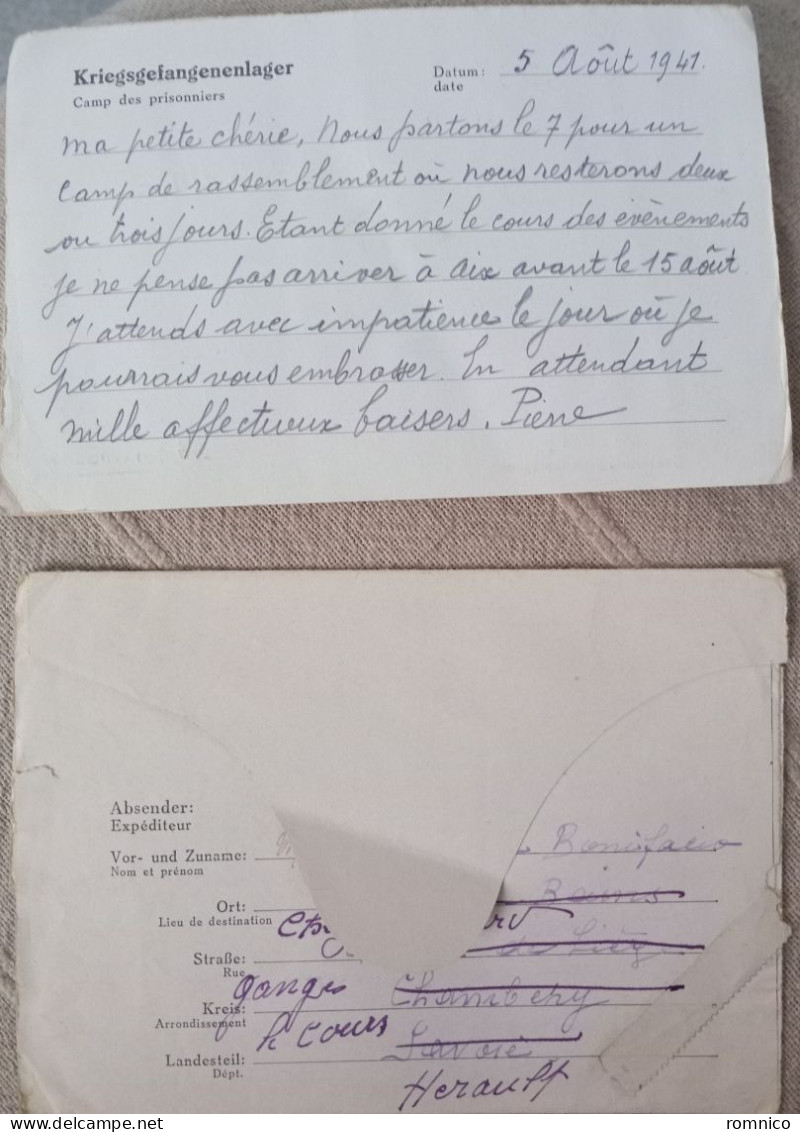 Kriegsgefangenenlager
Camp des prisonniers
Datum: 5 Août 1941.
date
ma petite chérie, Nous partons le 7 pour un
camp de rassemblement où nous resterons deux
ou trois jours. Etant donné le cours des évènements
je ne pense pas arriver à Aix avant le 15 août
J'attends avec impatience le jour où je
pourrais vous embrasser. En attendant
mille affectueux baisers. Pierre
Absender:
Expéditeur
Vor- und Zuname: Bonifacio
Nom et prénom
Ort: Bains
Lieu de destination
Straße:
Rue
Ganges Chambéry
Kreis:
Arrondissement
le cours
Savoie
Landesteil:
Dépt.
Herault
romnico